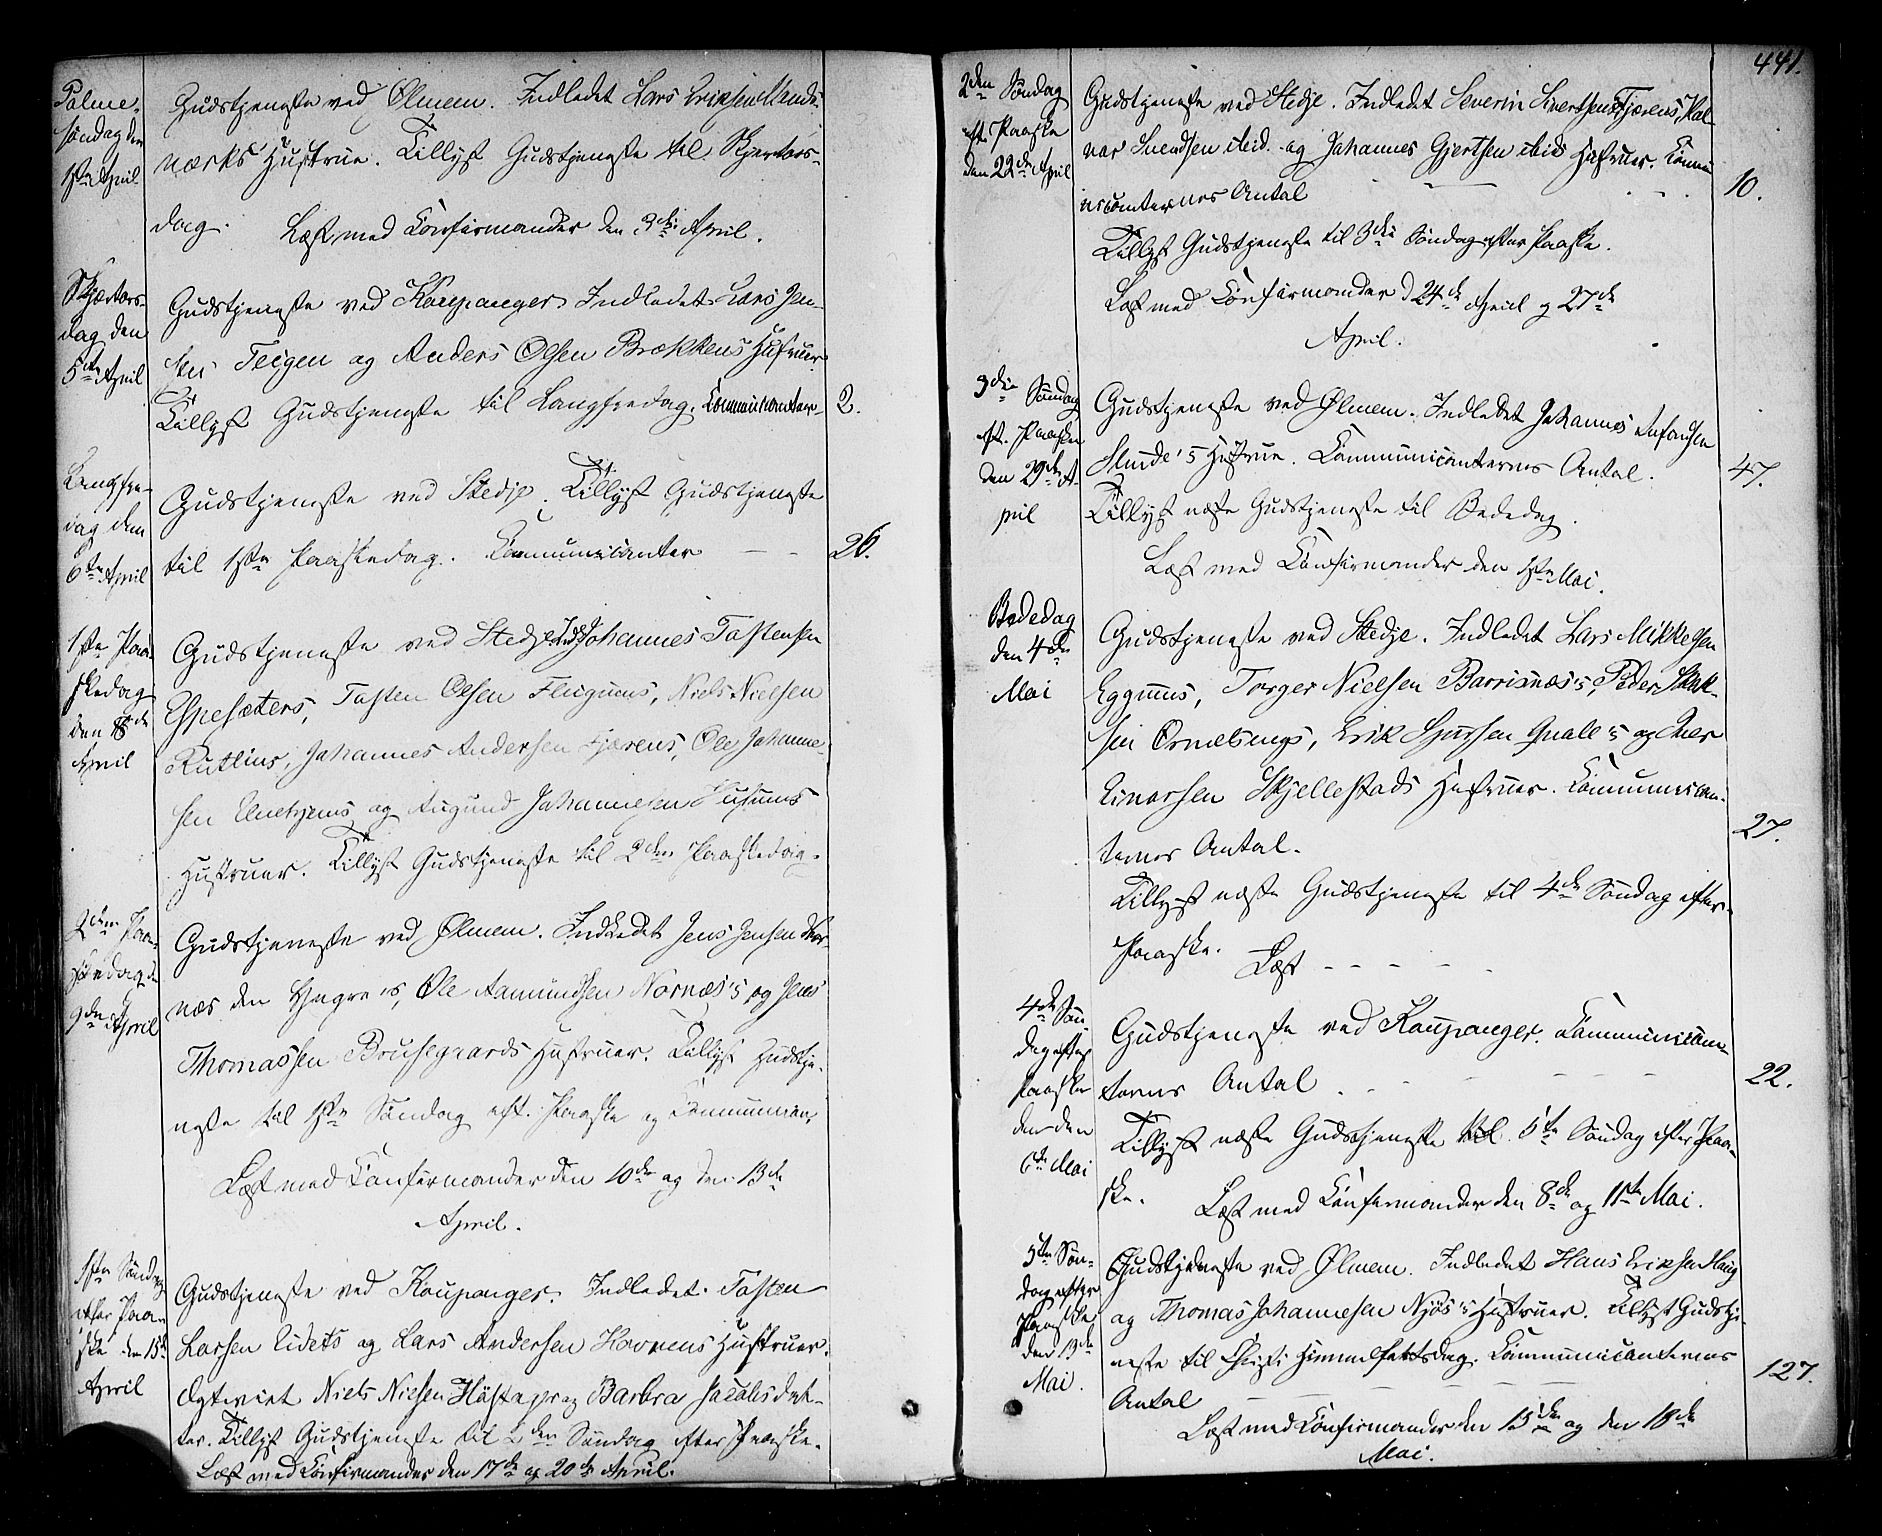 Palme-
søndag den
1ste April
Gudstjeneste ved Ølmem. Indledet Lars Eriksen
værks Hustrue. Tillyst Gudstjeneste til Skjertors-
dag. Læst med Confirmander den 3die April.
Skjertors-
dag den
5te April
Gudstjeneste ved Kaupanger. Indledet Lars Jen-
sen Teigen og Anders Olsen Brækkens Hustruer
Tillyst Gudstjeneste til Langfredag. Communicanter- 2.
Langfre-
dag den
6te April
Gudstjeneste ved Stedje. Tillyst Gudstjeneste
til 1ste Paaskedag. Communicanter - - 26.
1ste Paa-
skedag
den 8de
April
Gudstjeneste ved Stedje Indl Johannes Tostensen
Espesæters, Tosten Olsen Flugums, Niels Nielsen
Rutlins, Johannes Andersen Fjærens, Ole Johanne-
sen og Augund Johannesen Husums
Hustruer. Tillyst Gudstjeneste til 2den Paaskedag.
2den Paa-
skedag d.
9de April
Gudstjeneste ved Ølmem. Indledet Jens Jensen Nor-
næs den Yngre's, Ole Aamundsen Nornæs's og Jens
Thomassen Brusegaards Hustruer. Tillyst Gudstje-
neste til 1ste Søndag eft. Paaske og Communican.
Læst med Confirmander den 10de og den 13de
April.
1ste Søndag
efter Paa-
ske den 15de
April
Gudstjeneste ved Kaupanger. Indledet Tosten
Larsen Eidets og Lars Andersen Hovnens Hustruer.
Ægteviet Niels Nielsen og Barbra Jacobsdat-
ter. Tillyst Gudstjeneste til 2den Søndag efter Paaske.
Læst med Confirmander den 17de og 20de April.
441.
2den Søndag
eft. Paaske
den 22de April
Gudstjeneste ved Stedje. Indledet Severin Sivertsens Fjærens,
Svendsen ibid. og Johannes Gjertsen ibid Hustruer. Commu-
nicanternes Antal 10.
Tillyst Gudstjeneste til 3die Søndag efter Paaske.
Læst med Confirmander d 24de April og 27de
April.
3die Søndag
eft. Paaske
den 29de A-
pril
Gudstjeneste ved Ølmem. Indledet Johannes
Slinde's Hustrue. Communicanternes Antal. 47.
Tillyst næste Gudstjeneste til Bededag.
Læst med Confirmander den 1ste Mai.
Bededag
den 4de
Mai
Gudstjeneste ved Stedje. Indledet Lars Mikkelsen
Eggums, Torger Nielsen Barsnæs's, Peder
sen Ornebergs, Erik Sjursen Qvale's og Iver
Einarsen Skjellestads Hustruer. Communican-
ternes Antal. 27.
Tillyst næste Gudstjeneste til 4de Søndag efter
Paaske. Læst - - - - -
4de Søn-
dag efter
Paaske
den
6te Mai
Gudstjeneste ved Kaupanger. Communican-
ternes Antal - - - - - 22.
Tillyst næste Gudstjeneste til 5te Søndag efter Paa-
ske. Læst med Confirmander den 8de og 11te Mai.
5te Søn-
dag efter
Paaske
den 13de
Mai.
Gudstjeneste ved Ølmem. Indledet Hans Eriksen Haug
og Thomas Johannesen Njøs's Hustruer. Tillyst Gudstje-
neste til Christi Himmelfartsdag. Communicanternes
Antal - - - - - 127.
Læst med Confirmander den 15de og den 18de
Mai.